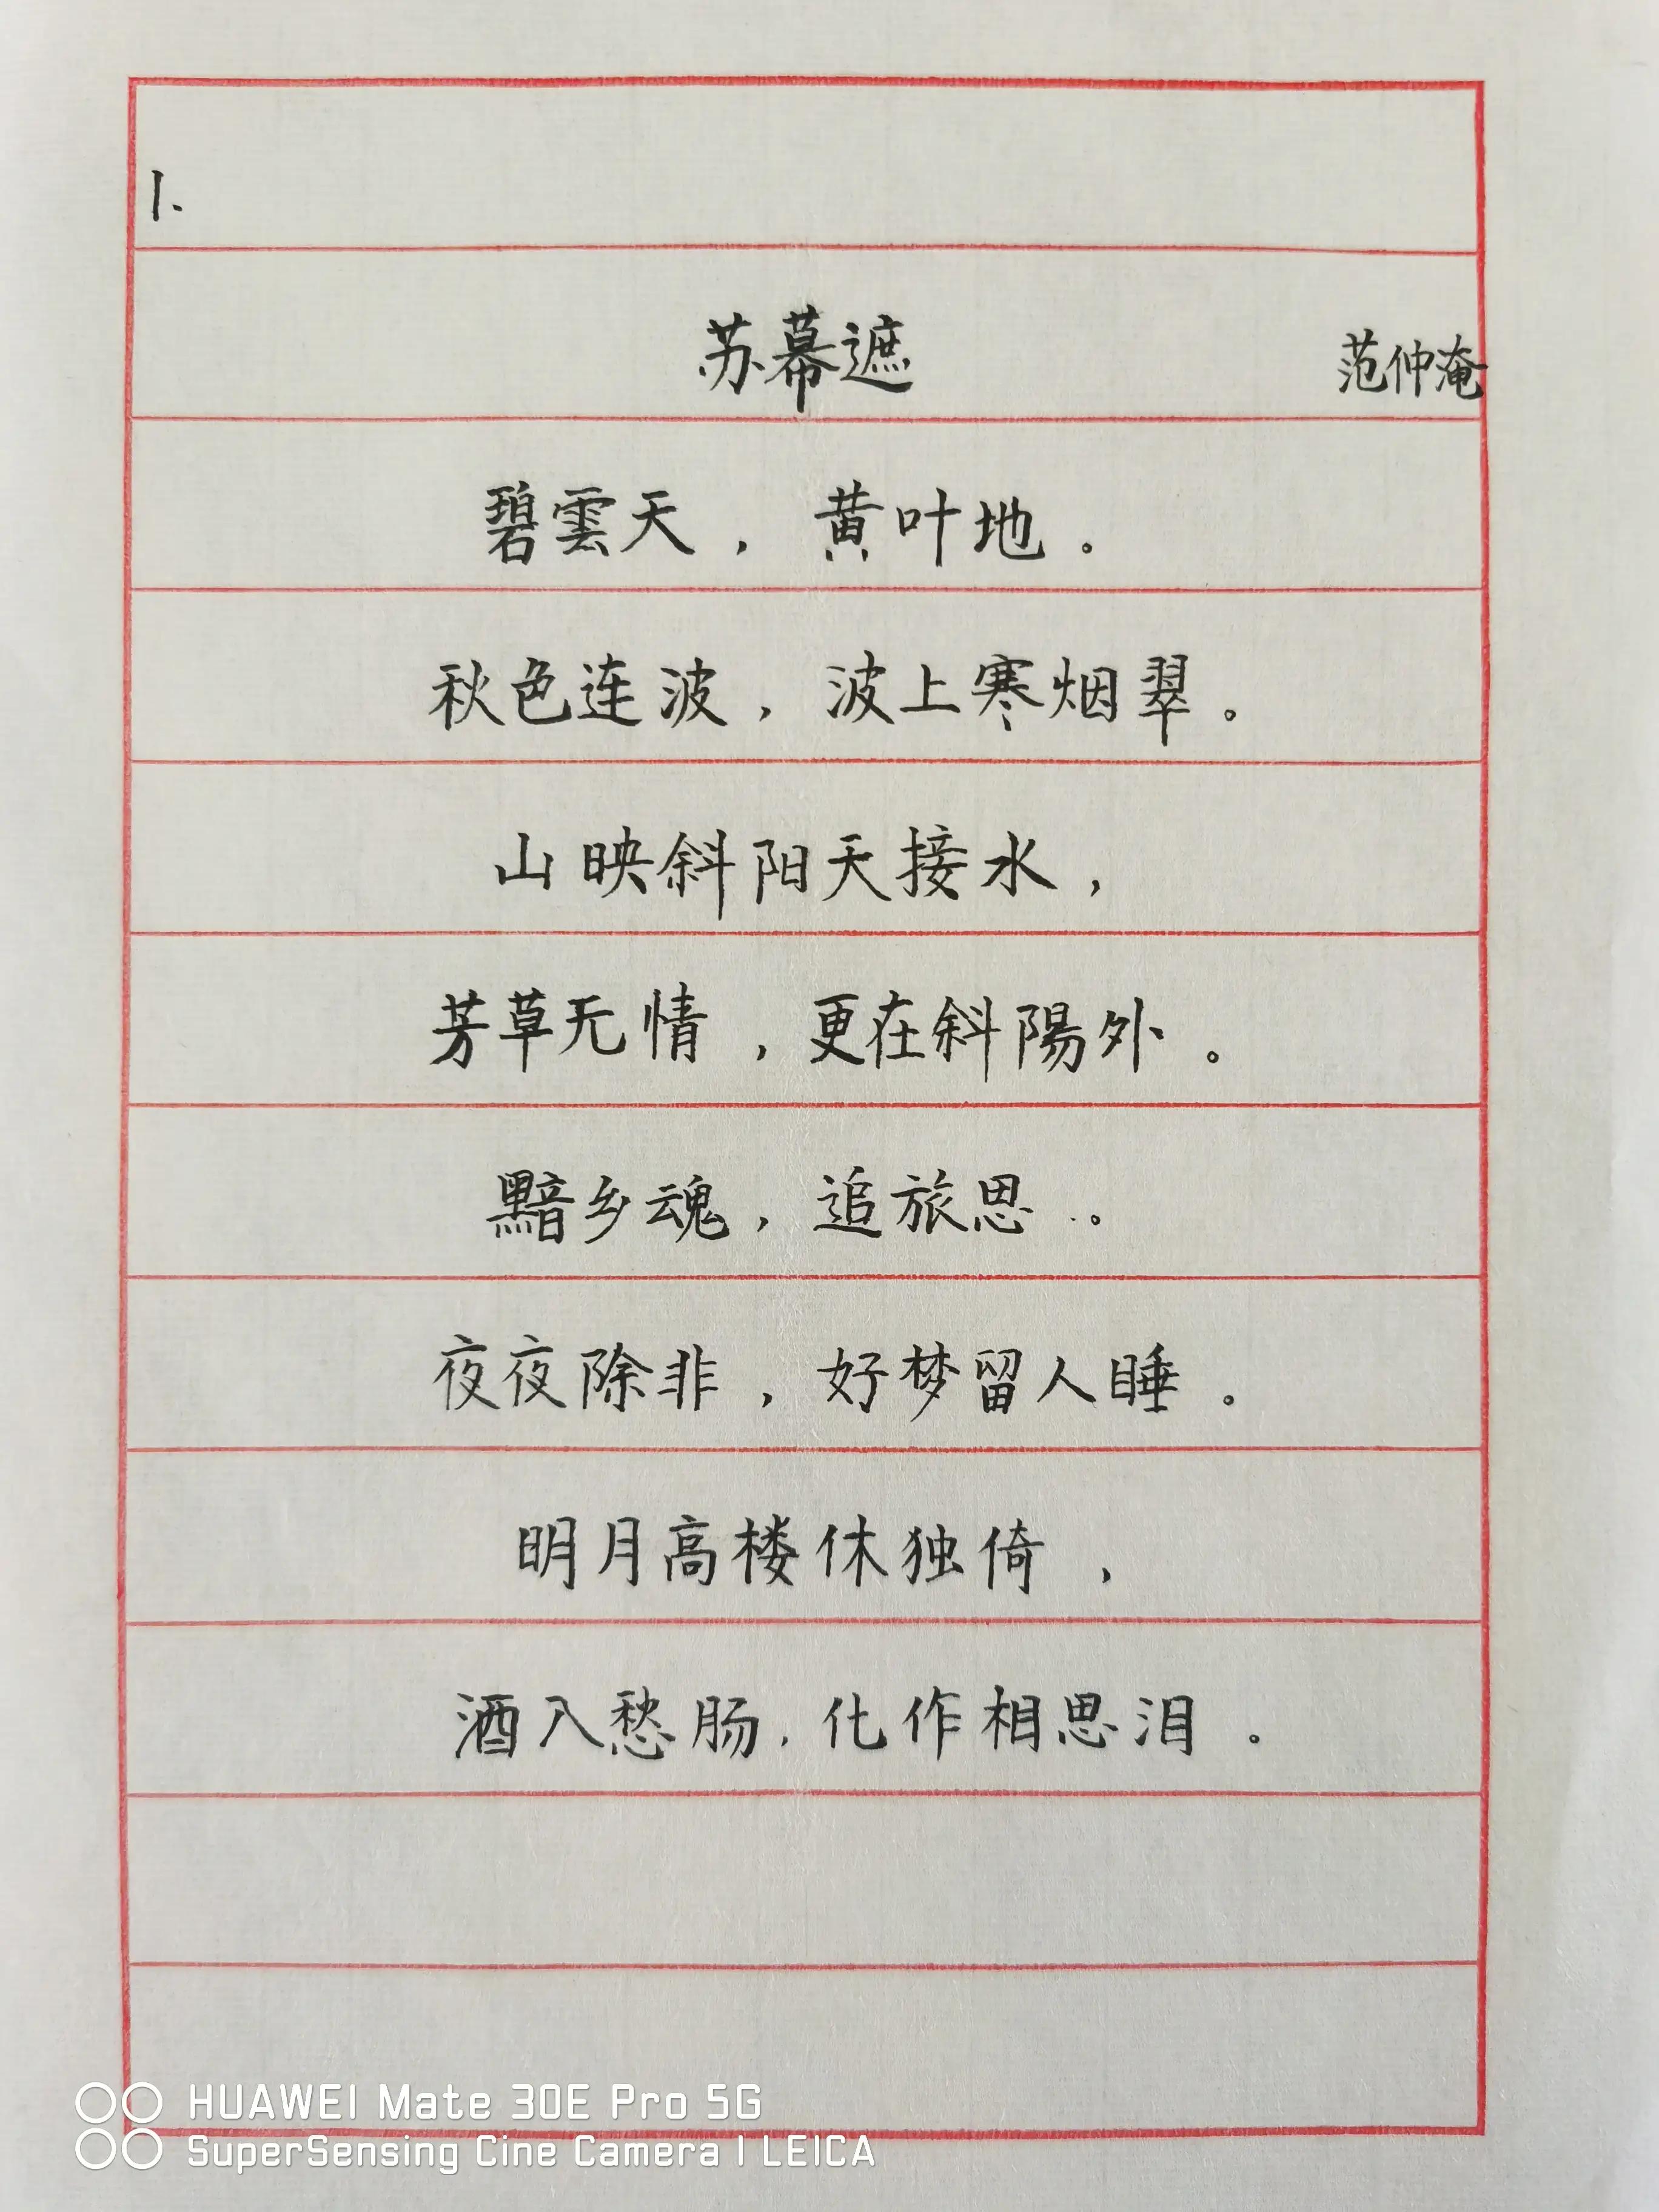 1.
苏幕遮 范仲淹
碧雲天，黄叶地。
秋色连波，波上寒烟翠。
山映斜阳天接水，
芳草无情，更在斜陽外。
黯乡魂，追旅思。
夜夜除非，好梦留人睡。
明月高楼休独倚，
酒入愁肠，化作相思泪。
HUAWEI Mate 30E Pro 5G
SuperSensing Cine Camera | LEICA